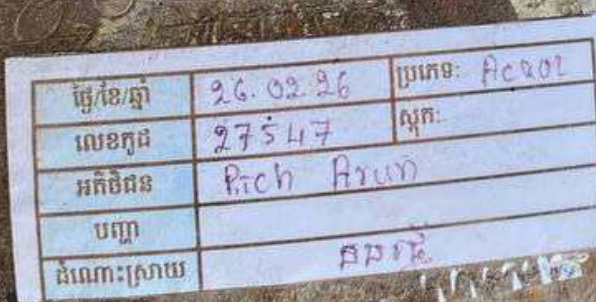 ថ្ងៃ/ខែ/ឆ្នាំ 26.02.26 ប្រភេទ:
លេខកូដ 27547 ស្តុក:
អតិថិជន Rich Arun
បញ្ហា
ដំណោះស្រាយ